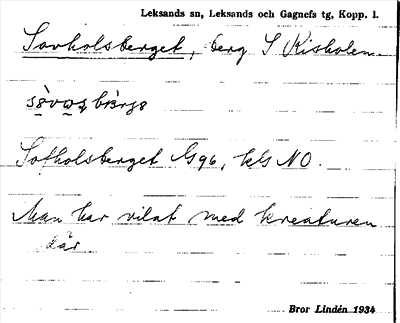 Leksands sn, Leksands och Gagnefs tg, Kopp. l.
Sovholsberget, berg S Kisholen.
Sofholsberget G96, kls NO.
Man har vilat med kreaturen
där
Bror Lindén 1934